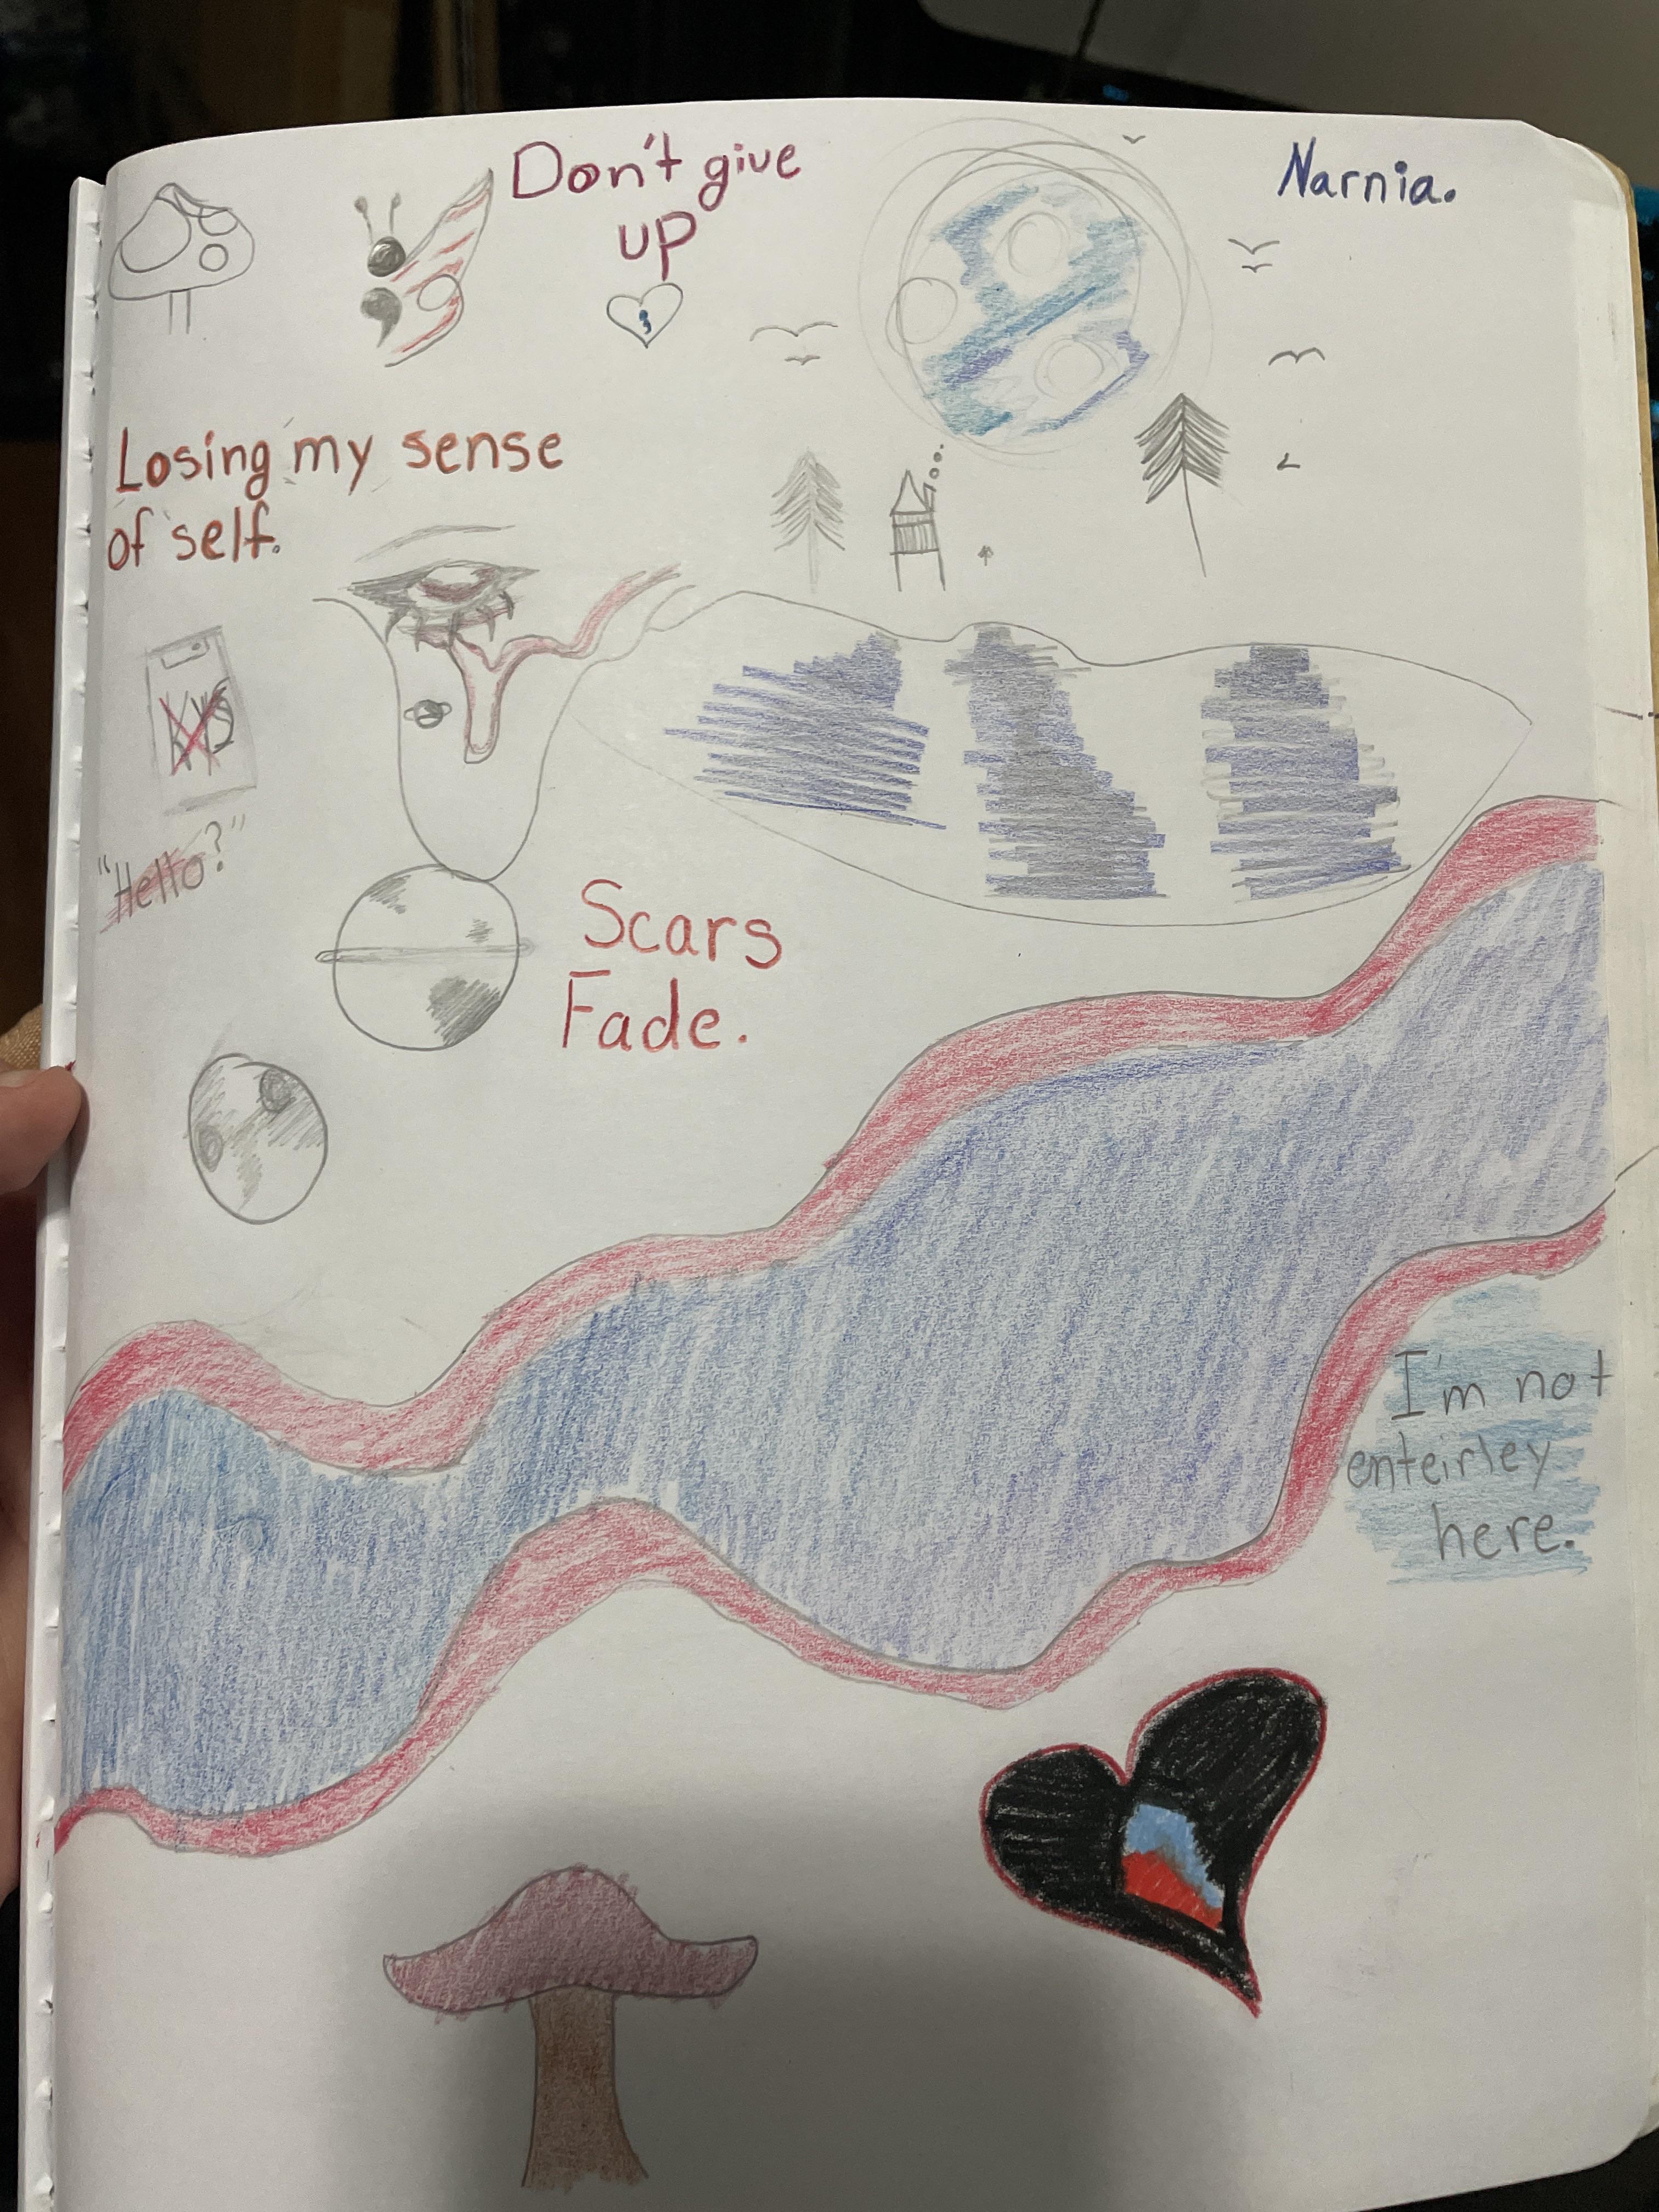 Don't give
up
Narnia.
Losing my sense
of self.
KYS
"Hello?"
Scars
Fade.
I'm not
enteirley
here.